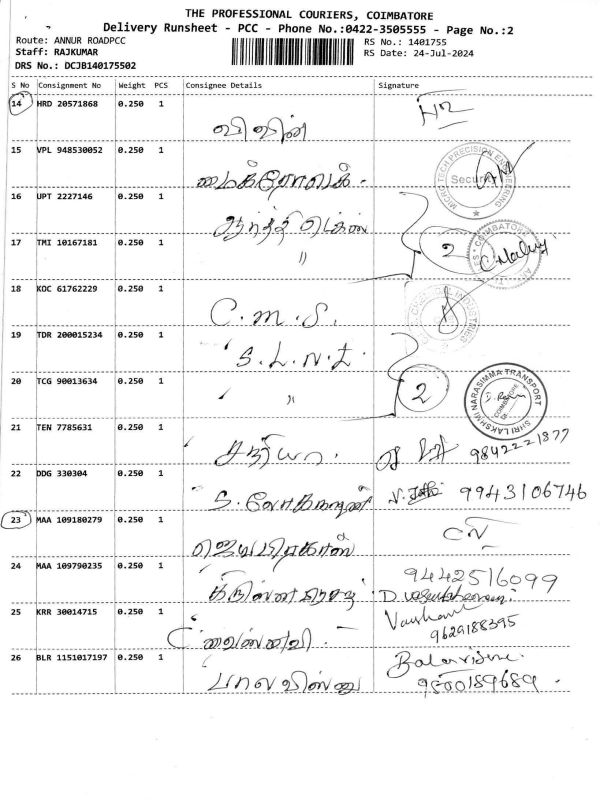 THE PROFESSIONAL COURIERS, COIMBATORE
Delivery Runsheet - PCC - Phone No.:0422-3505555 - Page No.:2
Route: ANNUR ROADPCC
RS No.: 1401755
Staff: RAJKUMAR
RS Date: 24-Jul-2024
DRS No.: DCJB140175502
S No Consignment No Weight PCS Consignee Details Signature
14 HRD 20571868 0.250 1
விவின்
15 VPL 948530052 0.250 1
MICRO TECH PRECISION ENGINEERING
Security
16 UPT 2227146 0.250 1
17 TMI 10167181 0.250 1
" 2
18 KOC 61762229 0.250 1
C.M.S.
19 TDR 200015234 0.250 1
S.L.N.T.
20 TCG 90013634 0.250 1
" 2
SHRI LAKSHMI NARASIMMA TRANSPORT
COIMBATORE
21 TEN 7785631 0.250 1
9842221877
22 DDG 330304 0.250 1
9943106746
23 MAA 109180279 0.250 1
ஜெயபிரகாஸ்
24 MAA 109790235 0.250 1
9442516099
25 KRR 30014715 0.250 1
வைஸ்ணவி.
9629188395
26 BLR 1151017197 0.250 1
பாலவிஸ்னு
9500189689